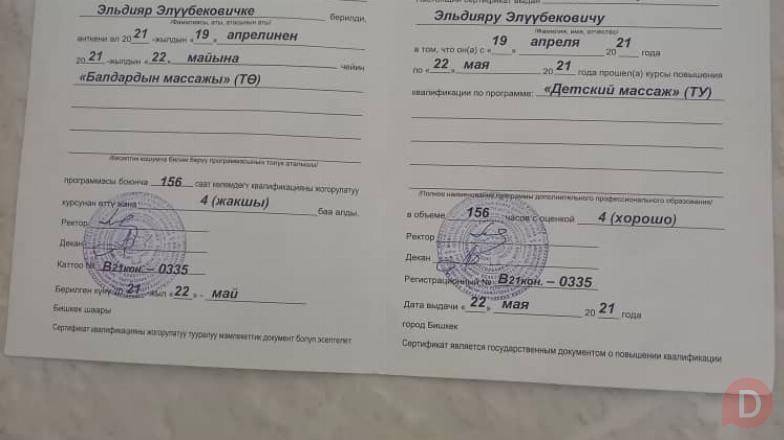 Эльдияр Элүүбековичке берилди,
/Фамилиясы, аты, атасынын аты/
анткени ал 2021 -жылдын «19» апрелинен
2021 -жылдын «22» майына чейин
«Балдардын массажы» (ТӨ)
/Кесиптик кошумча билим берүү программасынын толук аталышы/
программасы боюнча 156 саат көлөмдөгү квалификацияны жогорулатуу
курсунан өттү жана 4 (жакшы) баа алды.
Ректор
Декан
Каттоо № В21кон. – 0335
Берилген күнү 2021 -жыл «22» - май
Бишкек шаары
Сертификат квалификацияны жогорулатуу тууралуу мамлекеттик документ болуп эсептелет
Настоящий сертификат выдан
Эльдияру Элүүбековичу
/Фамилия, имя, отчество/
в том, что он(а) с «19» апреля 2021 года
по «22» мая 2021 года прошел(а) курсы повышения
квалификации по программе: «Детский массаж» (ТУ)
/Полное наименование программы дополнительного профессионального образования/
в объеме 156 часов с оценкой 4 (хорошо)
Ректор
Декан
Регистрационный № В21кон. – 0335
Дата выдачи «22» мая 2021 года
город Бишкек
Сертификат является государственным документом о повышении квалификации
D